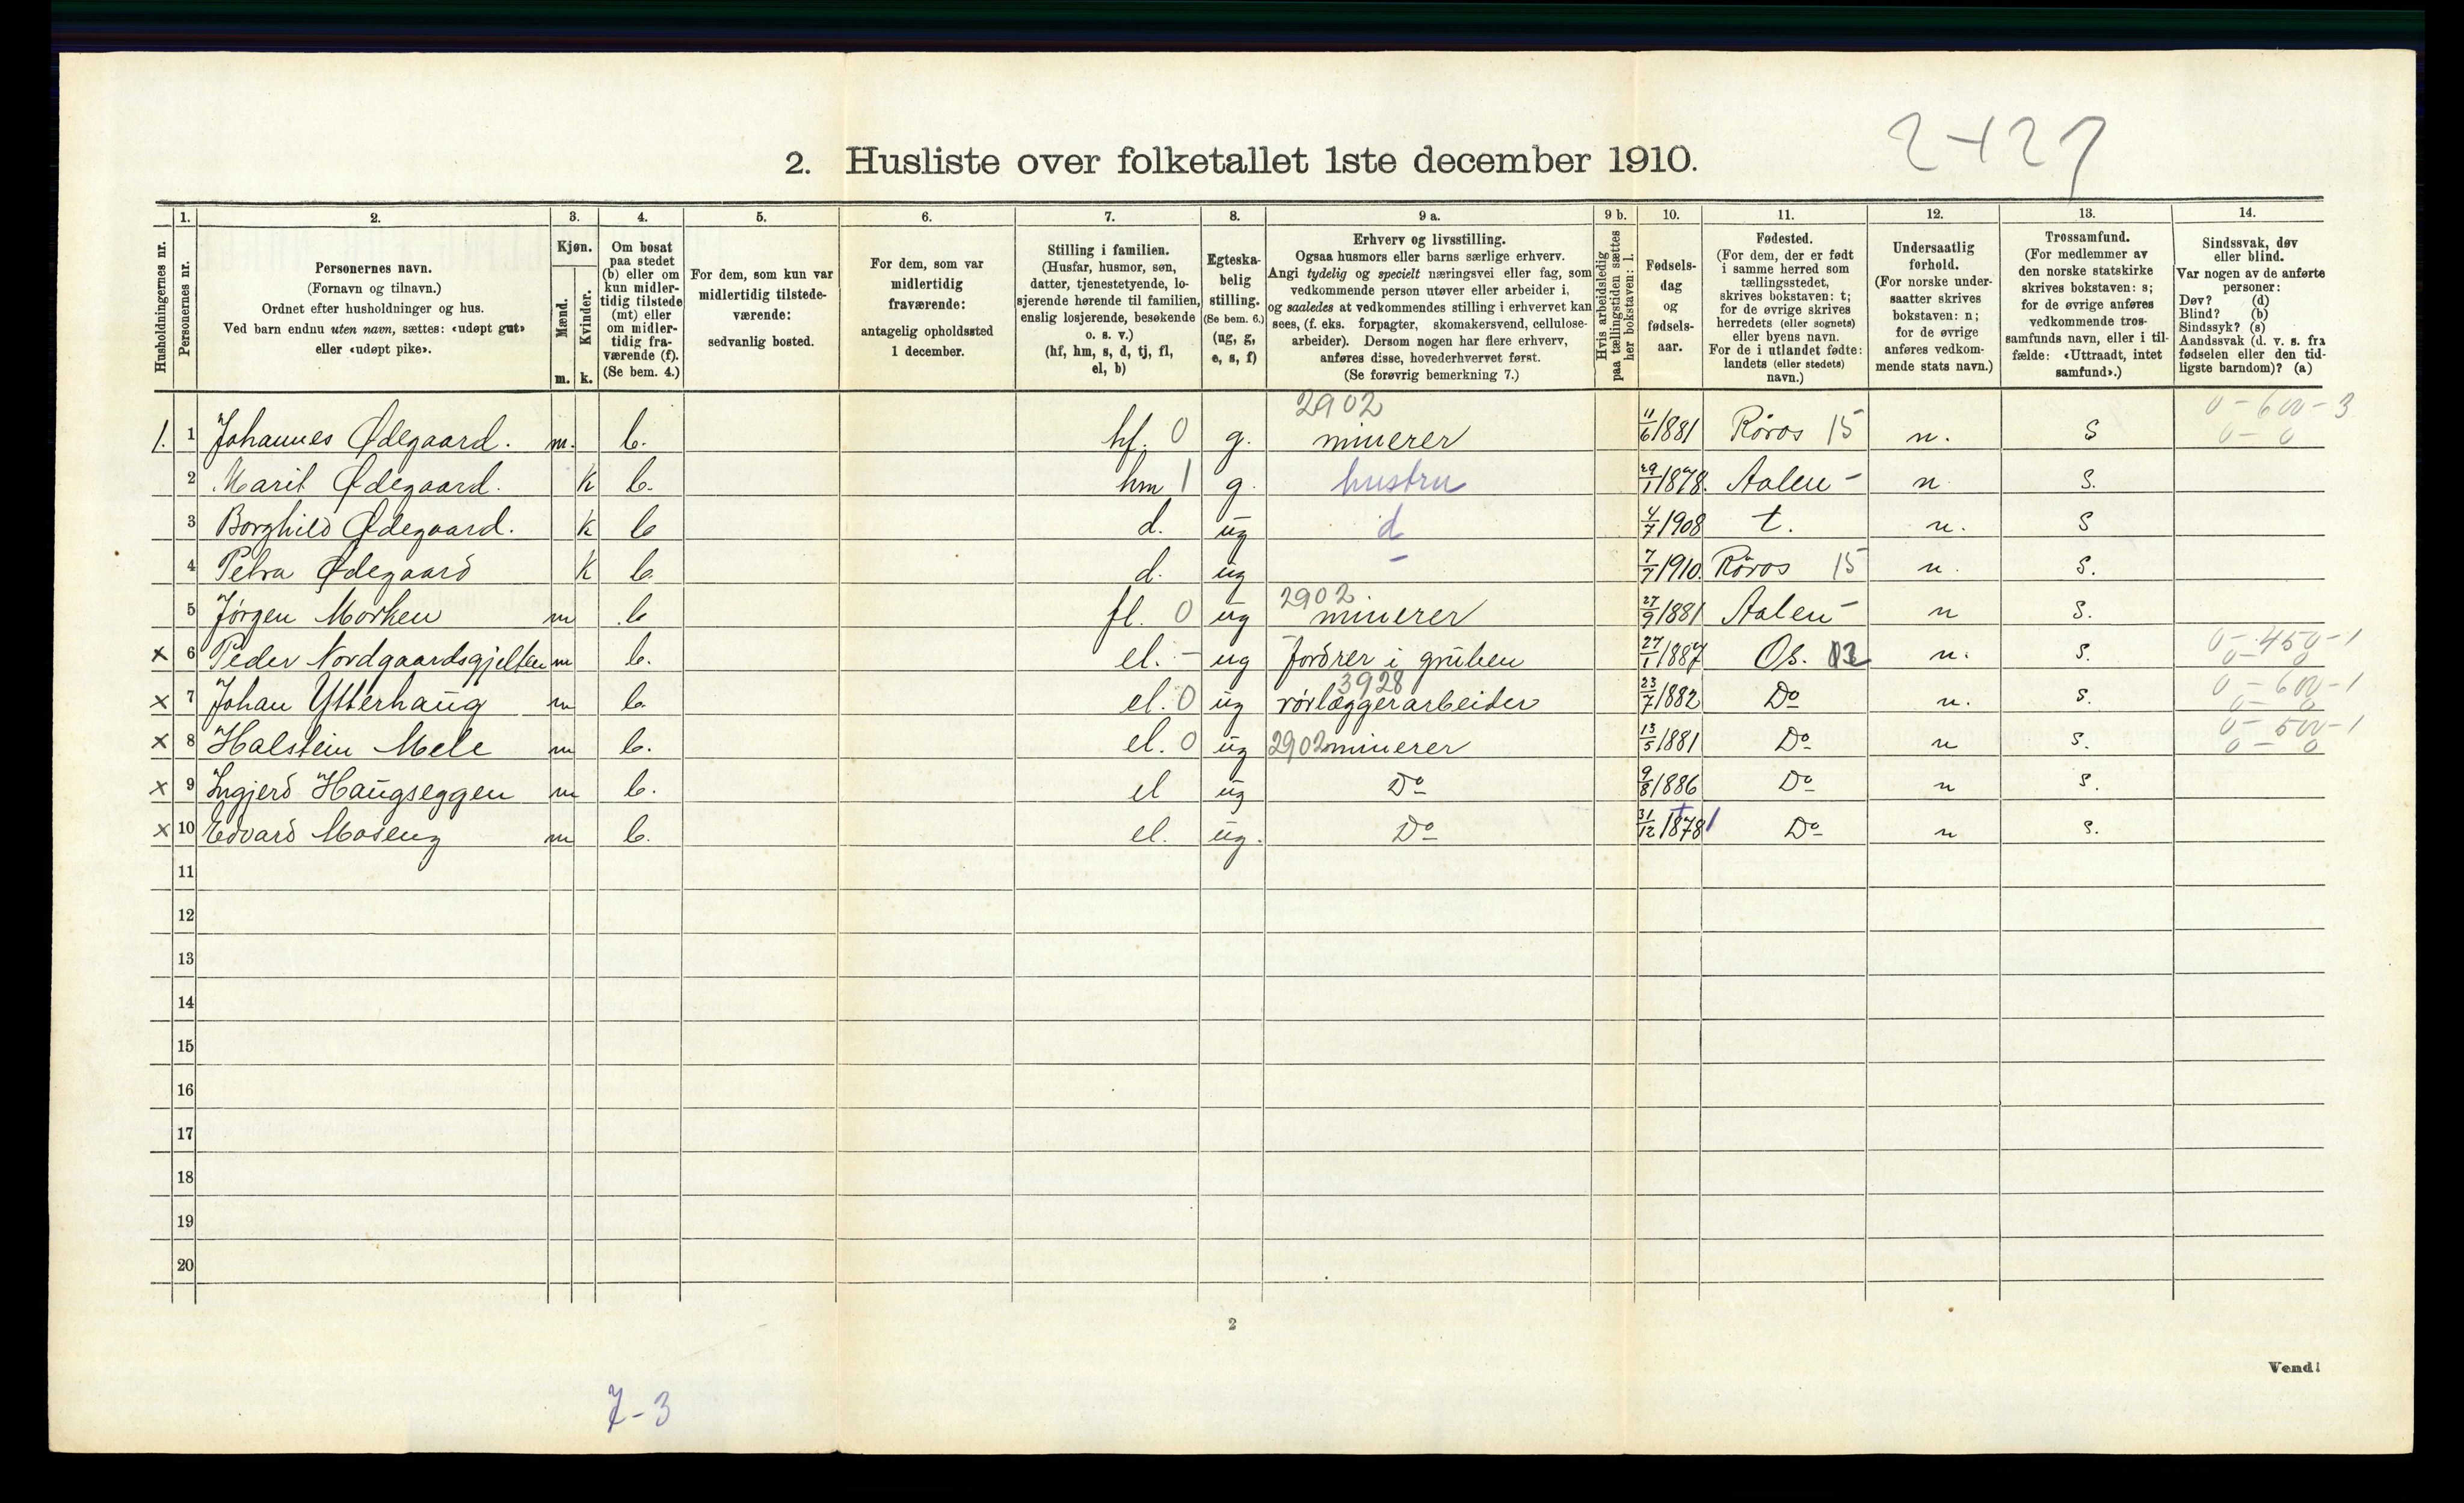 2. Husliste over folketallet 1ste december 1910.
2-127
1. 2. 3. 4. 5. 6. 7. 8. 9 a. 9 b. 10. 11. 12. 13. 14.
Husholdningernes nr.
Personernes nr.
Personernes navn.
(Fornavn og tilnavn.)
Ordnet efter husholdninger og hus.
Ved barn endnu uten navn, sættes: «udøpt gut»
eller «udøpt pike».
Kjøn.
Mænd.
Kvinder.
m. k.
Om bosat
paa stedet
(b) eller om
kun midler-
tidig tilstede
(mt) eller
om midler-
tidig fra-
værende (f).
(Se bem. 4.)
For dem, som kun var
midlertidig tilstede-
værende:
sedvanlig bosted.
For dem, som var
midlertidig
fraværende:
antagelig opholdssted
1 december.
Stilling i familien.
(Husfar, husmor, søn,
datter, tjenestetyende, lo-
sjerende hørende til familien,
enslig losjerende, besøkende
o. s. v.)
(hf, hm, s, d, tj, fl,
el, b)
Egteska-
belig
stilling.
(Se bem. 6.)
(ug, g,
e, s, f)
Erhverv og livsstilling.
Ogsaa husmors eller barns særlige erhverv.
Angi tydelig og specielt næringsvei eller fag, som
vedkommende person utøver eller arbeider i,
og saaledes at vedkommendes stilling i erhvervet kan
sees, (f. eks. forpagter, skomakersvend, cellulose-
arbeider). Dersom nogen har flere erhverv,
anføres disse, hovederhvervet først.
(Se forøvrig bemerkning 7.)
Hvis arbeidsledig
paa tællingstiden sættes
her bokstaven: l.
Fødsels-
dag
og
fødsels-
aar.
Fødested.
(For dem, der er født
i samme herred som
tællingsstedet,
skrives bokstaven: t;
for de øvrige skrives
herredets (eller sognets)
eller byens navn.
For de i utlandet fødte:
landets (eller stedets)
navn.)
Undersaatlig
forhold.
(For norske under-
saatter skrives
bokstaven: n;
for de øvrige
anføres vedkom-
mende stats navn.)
Trossamfund.
(For medlemmer av
den norske statskirke
skrives bokstaven: s;
for de øvrige anføres
vedkommende tros-
samfunds navn, eller i til-
fælde: «Uttraadt, intet
samfund».)
Sindssvak, døv
eller blind.
Var nogen av de anførte
personer:
Døv? (d)
Blind? (b)
Sindssyk? (s)
Aandssvak (d. v. s. fra
fødselen eller den tid-
ligste barndom)? (a)
2902 0-600-3
1. 1 Johannes Ødegaard. m. b. hf. 0 g. minerer 11/6 1881 Röros 15 n. S 0-0
2 Marit Ødegaard. k b. hm 1 g. hustru 29/1 1878. Aalen - n S.
3 Borghild Ødegaard. k b d. ug d 4/7 1908 t. n. S
4 Petra Ødegaard k b. d. ug - 7/7 1910. Röros 15 n. S.
5 Jørgen Morken m b fl. 0 ug 2902 minerer 27/9 1881 Aalen - n S.
x 6 Peder Nordgaardsgjelten m b. el. - ug Fordrer i gruben 27/1 1887 Os. n. S. 0-450-1 0-0
x 7 Johan Ytterhaug m b. el. 0 ug 3928 rörlæggerarbeider 23/7 1882 Do n. S. 0-600-1 0-0
x 8 Halstein Mele m b. el. 0 ug 2902 minerer 13/5 1881 Do n S. 0-500-1 0-0
x 9 Ingjerd Haugseggen m b. el ug Do 9/8 1886 Do n S.
x 10 Edvard Moseng m b. el. ug. Do 31/12 1878 Do n S.
11
12
13
14
15
16
17
18
19
20
2
Vend!
7-3